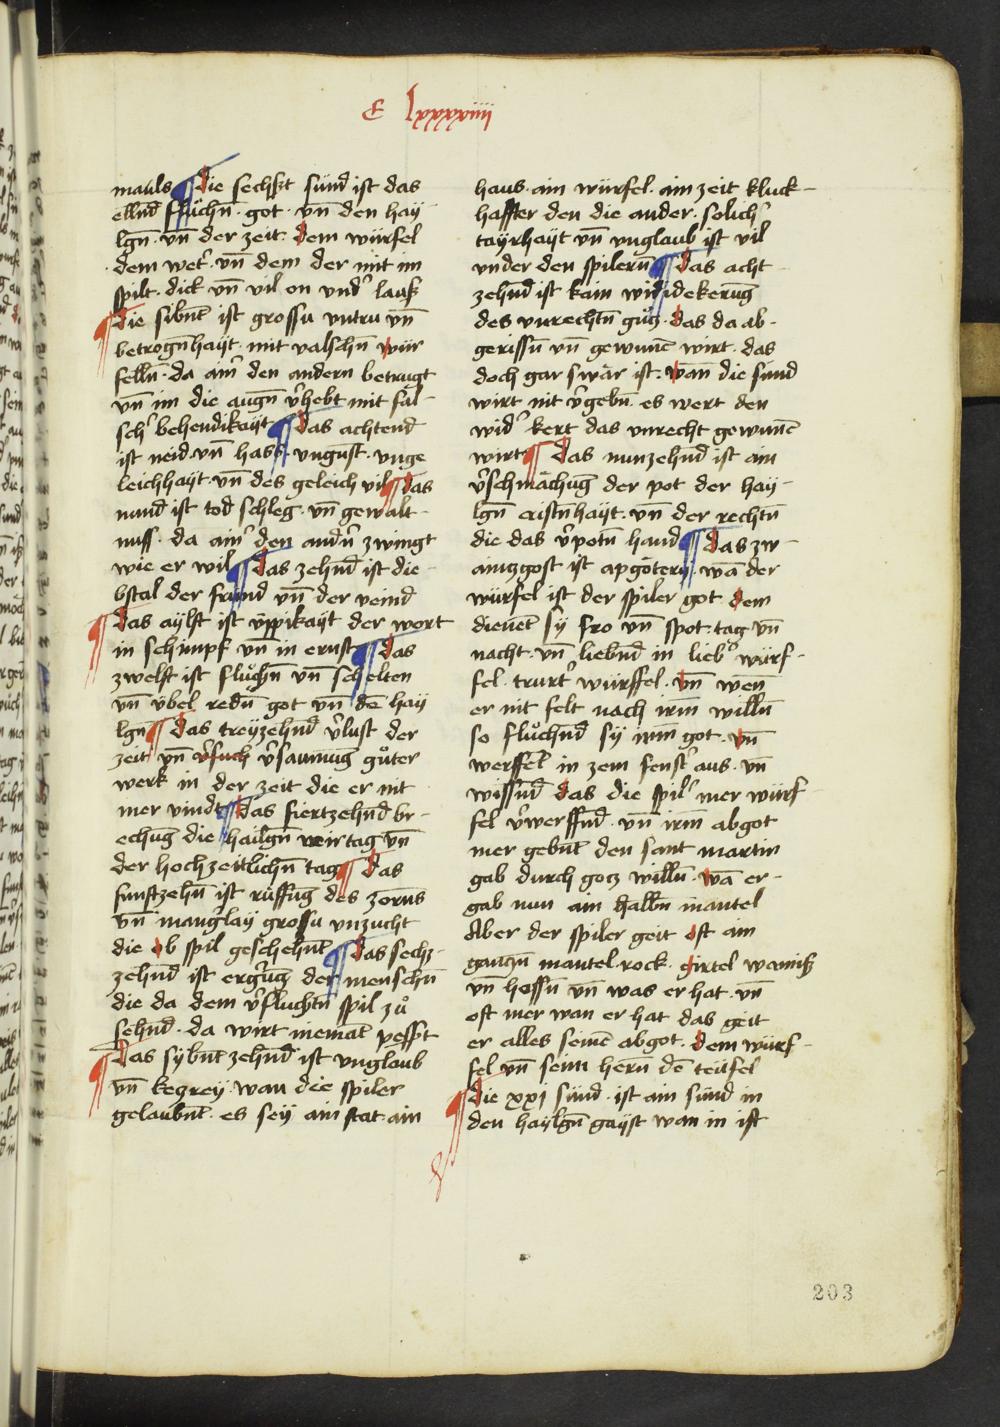 E lxxxxviiii
mauls ¶ Die sechszt sünd ist das
ellend flůchn̄ · got · vn̄ den hay
lgn̄ · vn̄ der zeit · Dem würfel
dem wet᷑ · vn̄ dem der mit im
spilt · dick vn̄ vil on vnd᷑ lasz
¶ Die sibnt̄ ist grossu vntru vn̄
betrogn̄hayt · mit valschn̄ wür
felln̄ · da ain᷑ den andern betrugt
vn̄ im die augn̄ v᷑hebt mit fal-
sch᷑ behendikayt ¶ Das achtend
ist neid · vn̄ hass · vngunst · vnge
leichhayt · vn̄ des geleich vil ¶ Das
nund ist tod schleg · vn̄ gewalt-
nuss · da ain᷑ den andn᷑ zwingt
wie er wil ¶ Das zehnd ist die-
bstal der fraind vn̄ der veind
¶ Das aylft ist v̈ppikayt der wort
in schimpf vn̄ in ernst ¶ Das
zwelft ist flůchn̄ vn̄ schelten
vn̄ v̈bel redn̄ got vn̄ dē hay
lgn̄ ¶ Das treyzehnd v᷑lust der
zeit vn̄ v᷑such v᷑saumūg gůter
werk in der zeit die er nit
mer vindt ¶ Das fiertzehnd br-
echūg die hailgn̄ veirtag vn̄
der hochzeitlichn̄ tag ¶ Das
funftzehn̄ ist rüffūg des zorns
vn̄ mangrlay grossu vnzucht
die ob spil geschehnt ¶ Das sech-
zehnd ist erg᷑ūg der menschn̄
die da dem v᷑fluchtn̄ spil zů
sehnd · da wirt nemāt pessrt
¶ Das sybnt zehnd ist vnglaub
vn̄ kegrey · wan die spiler
gelaubnt · es sey ain stat · ain
haus · ain würfel · ain zeit kluck-
haffter den die ander · solich᷑
tayrhayt vn̄ vnglaub ist vil
vnder den spilern̄ ¶ Das acht-
zehnd ist kain wididekerūg
des vnrechtn̄ gütz · das da ab-
gerissn̄ vn̄ gewunē wirt · das
doch gar swär ist · wan die sünd
wirt nit v᷑gebn̄ · es wert den
wid᷑ kert das vnrecht gewunē
wirt ¶ Das nunzehnd ist ain
v᷑schmächūg der pot der hay-
lgn̄ cristn̄hayt · vn̄ der rechtn̄
die das v᷑potn̄ hand ¶ Das zw-
ainzgost ist apgötery · wā der
würfel ist der spiler got · dem
dienēt sy fro vn̄ spot · tag vn̄
nacht · vn̄ liebnd in lieb᷑ würf-
fel · trurt᷑ würffel · vn̄ wen̄
er nit felt nach irm̄ willn̄
so flůchnd sy irm got · vn̄
werffel in zem fenst᷑ aus · vn̄
wissnd das die spil᷑ mer würf-
fel v᷑werffnd · vn̄ irm̄ abgot
mer gebnt den sant martin
gab durch gotz willn̄ · wā er-
gab nun ain halbn̄ mantel
Aber der spiler geit oft ain
gantzn̄ mantel · rock · girtel wamsz
vn̄ hossn̄ vn̄ was er hat · vn̄
oft mer wan er hat das geit
er alles seinē abgot · dem würf-
fel vn̄ seim hern̄ dē teüfel
¶ Die xxj sünd · ist ain sünd in
den haylgn̄ gayst wan in ist
203